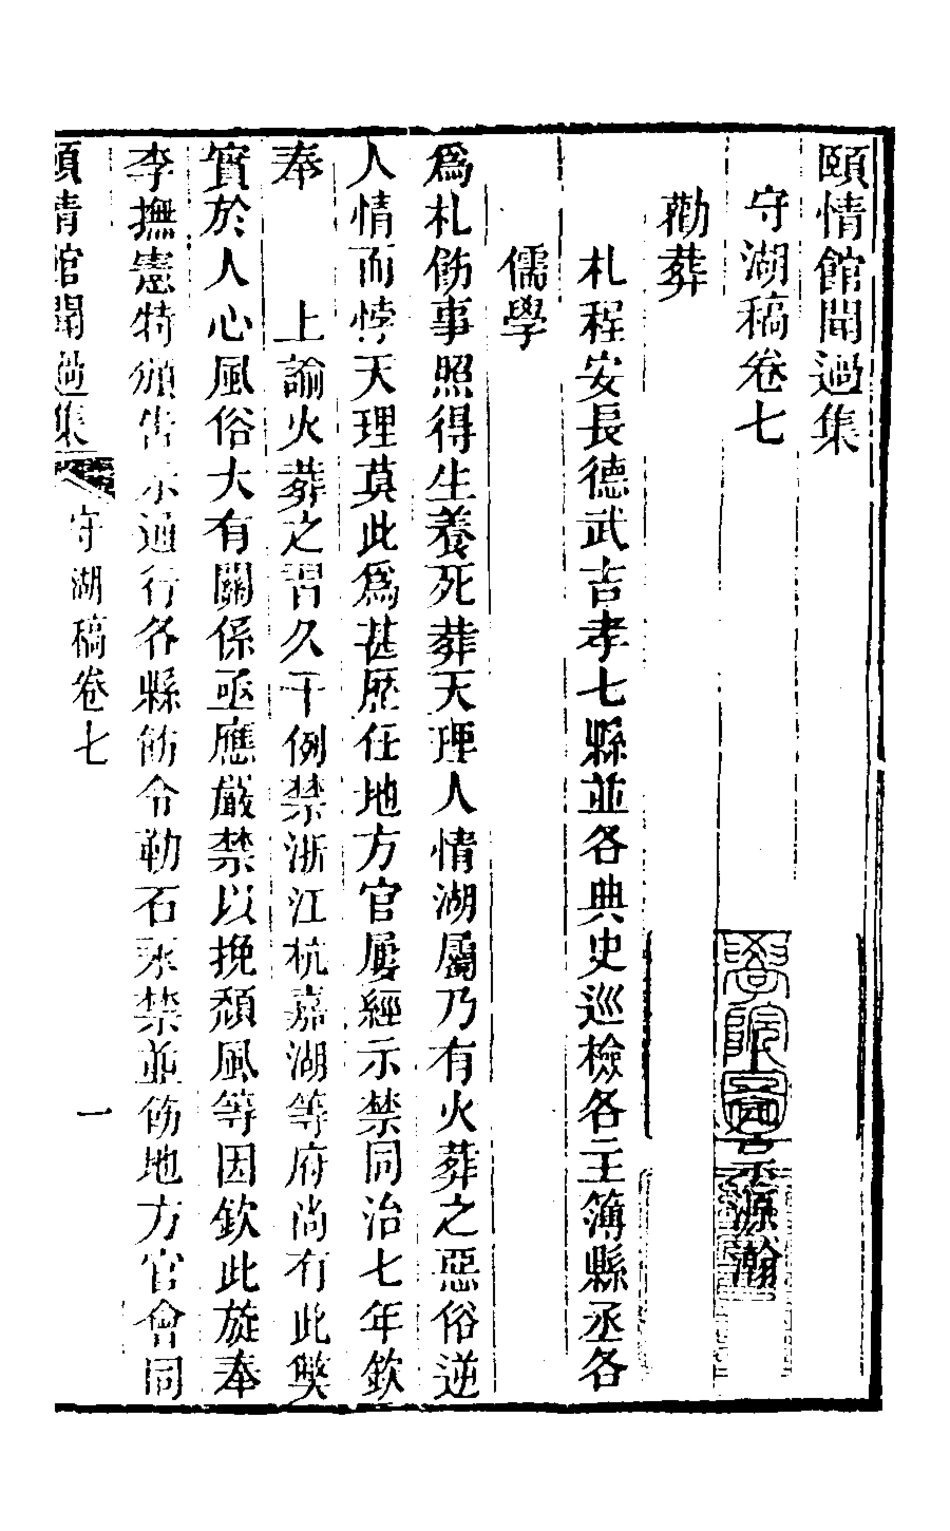 頤情館聞過集
守湖稿卷七
上元宗源瀚
勸葬
札程安長德武吉孝七縣並各典史巡檢各主簿縣丞各
儒學
爲札飭事照得生養死葬天理人情湖屬乃有火葬之惡俗逆
人情而悖天理莫此爲甚歷任地方官屢經示禁同治七年欽
奉　上諭火葬之習久干例禁浙江杭嘉湖等府尚有此獘
實於人心風俗大有關係亟應嚴禁以挽頹風等因欽此旋奉
李撫憲特頒告示通行各縣飭令勒石永禁並飭地方官會同
頤情館聞過集　守湖稿卷七　一